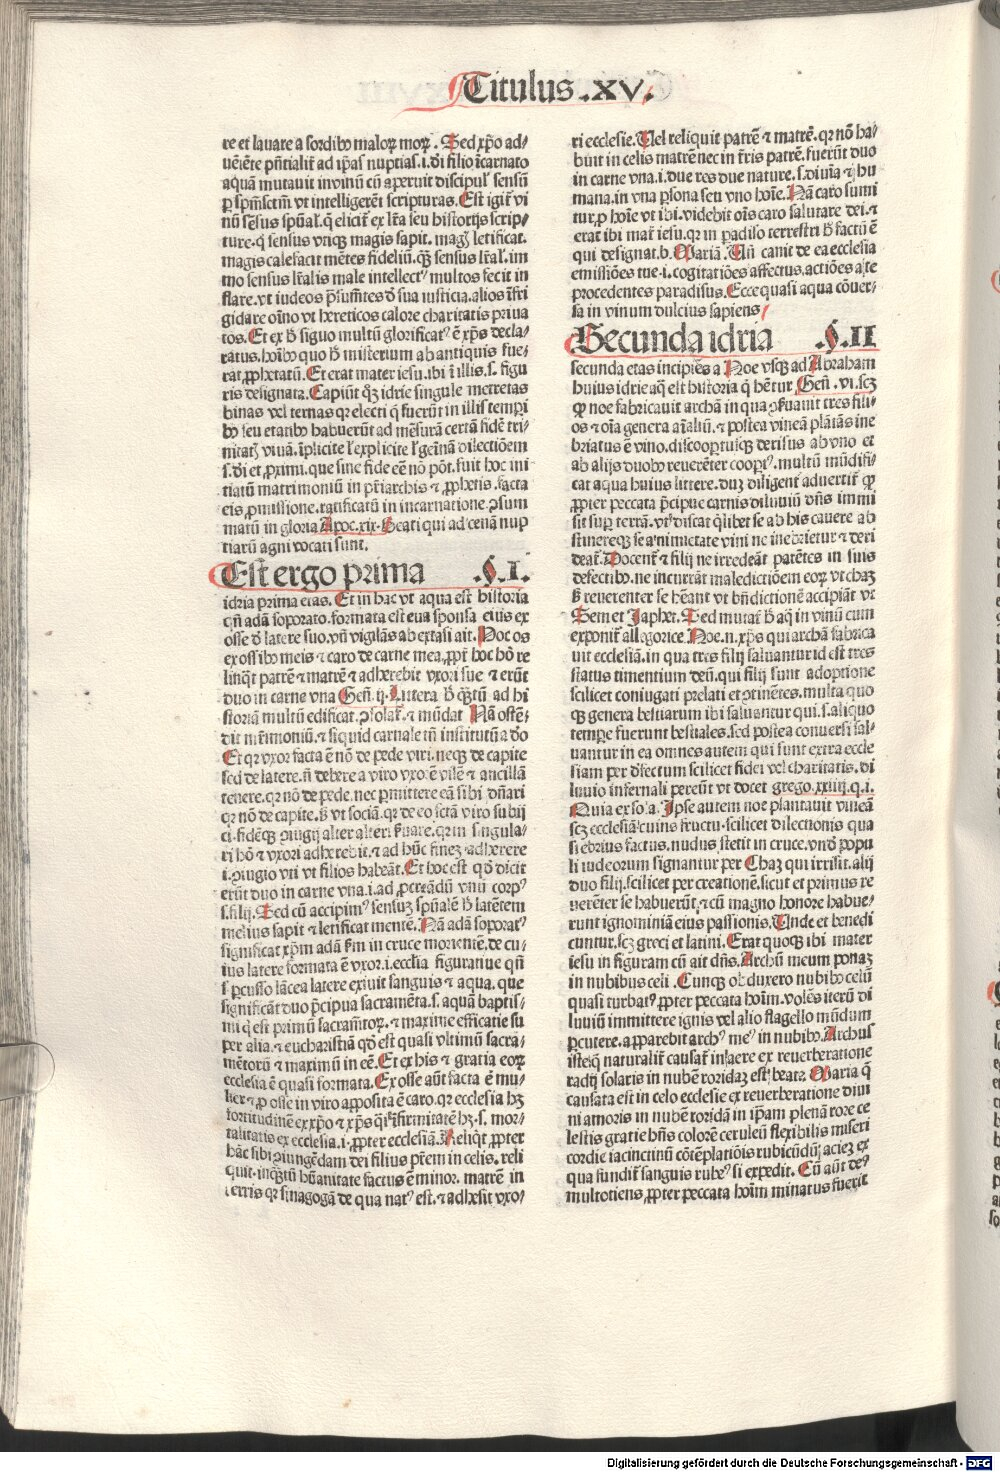 Titulus .XV.
re et lavare a sordibꝰ maloꝝ moꝝ. Sed xp̄o ad-
vēiēte pn̄tialit̄ ad ip̄as nuptias.i.dei filio īcarnato
aquā mutauit in vinū cū aperuit discipul' sensū
ꝑ sp̄m sctm̄ vt intelligerēt scripturas. Est igit̄ vi
nū sēsus sp̄ual'. q̄ elicit̄ ex lr̄a seu historijs scrip-
ture. q̄ sensus vtiqꝫ magis sapit. magꝭ letificat.
magis calefacit mētes fideliū. qꝫ sensus lr̄al'. im
mo sensus lr̄alis male intellectꝰ multos fecit in
flare. vt iudeos p̄sumētes d̄ sua iusticia. alios īfri
gidare oīno vt hereticos calore charitatis priua
tos. Et ex h̄ signo multū glorificatꝰ ē xp̄s decla-
ratus. hoībꝰ quo h̄ misterium ab antiquis fue-
rat ꝓphetatū. Et erat mater iesu. ibi ī illis. s. figu
ris designata. Capiūt qꝫ idrie singule metretas
binas vel ternas qꝛ electi q̄ fuerūt in illis tempi
bꝰ seu etatibꝰ habuerūt ad mēsurā certā fidē tri-
nitatꝭ viuā. īplicite l' explicite l' geīnā dilectiōem
s. dei et ꝓximi. que sine fide eē nō pōt. fuit hoc ini
tiatū matrimoniū in pr̄iarchis ⁊ ꝓphetis. facta
eis ꝓmissione. ratificatū in incarnatione ꝯsum
matū in gloria Apoc. xix. Beati qui ad cenā nup
tiarū agni vocati sunt.
Est ergo prima .§.I.
idria prima etas. Et in hac vt aqua est historia
qn̄ adā soporato. formata est eua sponsa eius ex
osse d̄ latere suo. vn̄ vigilās ab extasi ait. Hoc os
ex ossibꝰ meis ⁊ caro de carne mea. ꝓpt̄ hoc hō re
linqt̄ patrē ⁊ matrē ⁊ adherebit vxori sue ⁊ erūt
duo in carne vna Geñ. ij. Littera h̄ qꝫtū ad hi
storiā multū edificat. ꝯsolat̄. ⁊ mūdat Nā ostē-
dit mr̄imoniū. ⁊ siquid carnale tn̄ institutū a deo
Et qꝛ vxor facta ē nō de pede viri. neqꝫ de capite
sed de latere. n̄ debere a viro vxorē vilē ⁊ ancillā
tenere. qꝛ nō de pede. nec ꝑmittere eā sibi dn̄ari
qꝛ nō de capite. h̄ vt sociā. qꝛ de eo sctā viro subij
ci. fidēqꝫ ꝯiugij alter alteri ẜuare. qꝛ in singula-
ri hō ⁊ vxori adherebit. ⁊ ad hūc finez adherere
i. ꝯiugio vti vt filios habeāt. Et hoc est qd̄ dicit
erūt duo in carne vna. i. ad ꝓcreādū vnū corpꝰ
s. filij. Sed cū accipimꝰ sensuz sp̄ualē h̄ latētem
melius sapit ⁊ letificat mentē. Nā adā soporatꝰ
significat xp̄m adā ẜm in cruce morientē. de cu-
ius latere formata ē vxor. i. ecclīa figuratiue qn̄
s. ꝑcusso lācea latere exiuit sanguis ⁊ aqua. que
significāt duo p̄cipua sacramēta. s. aquā baptis-
mi q̄ est primū sacramētoꝝ. ⁊ maxime efficatie su
per alia. ⁊ eucharistiā qd̄ est quasi vltimū sacra-
mētorū ⁊ maximū in eē. Et ex his ⁊ gratia eoꝝ
ecclesia ē quasi formata. Ex osse aūt facta ē mu-
lier ⁊ ꝓ osse in viro apposita ē caro. qꝛ ecclesia hꝫ
fortitudinē ex xp̄o ⁊ xp̄s q̄si īfirmitatē hꝫ. s. mor-
talitatis ex ecclesia. i. ꝓpter ecclesiā. Reliqt̄ ꝓpter
hāc sibi ꝯiungēdam dei filius pr̄em in celis. reli
quit. inqꝫtū hūanitate factus ē minor. matrē in
terris qꝛ sinagogā de qua natꝰ est. ⁊ adhesit vxo-
ri ecclesie. Vel reliquit patrē ⁊ matrē. qꝛ nō ha-
buit in celis matrē nec in tr̄is patrē. fuerūt duo
in carne vna. i. due res due nature. s. diuīa ⁊ hu
mana. in vna ꝑsona seu vno hoīe. Nā caro sumi
tur ꝓ hoīe vt ibi. videbit oīs caro salutare dei. ⁊
erat ibi mat̄ iesu. qꝛ in padiso terrestri h̄ factū ē
qui designat. b. Mariā. Vn̄ canit de ea ecclesia
emissiōes tue. i. cogitatiōes affectus. actiōes a te
procedentes paradisus. Ecce quasi aqua cōuer-
sa in vinum dulcius sapiens
Secunda idria .§.II
secunda etas incipiēs a Noe vsqꝫ ad Abraham
huius idrie aq̄ est historia q̄ hētur Geñ. vi. scꝫ
ꝙ noe fabricauit archā in qua ꝯẜuauit tres fili-
os ⁊ oīa genera aīaliū. ⁊ postea vineā plātās ine
briatus ē vino. discooptusqꝫ derisus ab vno et
ab alijs duobꝰ reuerēter cooptꝰ. multū mūdifi-
cat aqua huius littere. duꝫ diligent̄ aduertit̄ ꝙ
ꝓpter peccata p̄cipue carnis diluuiū dn̄s immi
sit sup̄ terrā. vt discat qlibet se ab his cauere ab
stinereqꝫ se a nimietate vini ne inebrietur ⁊ deri
deat̄. Docent̄ ⁊ filij ne irredeāt patētes in suis
defectibꝰ. ne incurrāt maledictiōem eoꝝ vt chaꝫ
h̄ reuerenter se hēant vt bn̄dictionē accipiāt vt
Sem et Japhet. Sed mutat̄ h̄ aq̄ in vinū cum
exponit̄ allegorice. Noe. n. xp̄s qui archā fabrica
uit ecclesiā. in qua tres filij saluantur id est tres
status timentium deū. qui filij sunt adoptione
scilicet coniugati prelati et ꝯtinētes. multa quo
qꝫ genera bestiarum ibi saluantur qui. s. aliquo
tempe fuerunt bestiales. sed postea conuersi sal-
uantur in ea omnes autem qui sunt extra eccle
siam per defectum scilicet fidei vel charitatis. di
luuio infernali pereūt vt docet grego. xxiiij. q. i.
Quia ex so'a. Ipse autem noe plantauit vineā
scꝫ ecclesiā cuius fructu. scilicet dilectionis qua
si ebrius factus. nudus stetit in cruce. vnd̄ popu
li iudeorum signantur per Chaꝫ qui irrisit. alij
duo filij. scilicet per creationē. sicut et primus re
uerēter se habuerūt. ⁊ cū magno honore habue-
runt ignominiā eius passionis. Unde et benedi
cuntur. scꝫ greci et latini. Erat quoqꝫ ibi mater
iesu in figuram cū ait dn̄s. Archū meum ponaꝫ
in nubibus celi. Cunqꝫ obduxero nubibꝰ celū
quasi turbatꝰ ꝓpter peccata hoīm. volēs iterū di
luuiū immittere ignis vel alio flagello mūdum
ꝑcutere. apparebit archꝰ meꝰ in nubibꝰ. Archus
isteiqꝫ naturalit̄ causat̄ in aere ex reuerberatione
radij solaris in nubē roridaꝫ est beata Maria q̄
causata est in celo ecclesie ex reuerberatione diui
ni amoris in nubē roridā in ip̄am plenā rore ce
lestis gratie hn̄s colorē ceruleū flexibilis miseri
cordie iacinctinū cōtēplatiōis rubicūdū aciez ex
qua fundit̄ sanguis rubeꝰ si expedit. Cū aūt deꝰ
multotiens ꝓpter peccata hoīm minatus fuerit
Digitalisierung gefördert durch die Deutsche Forschungsgemeinschaft - DFG